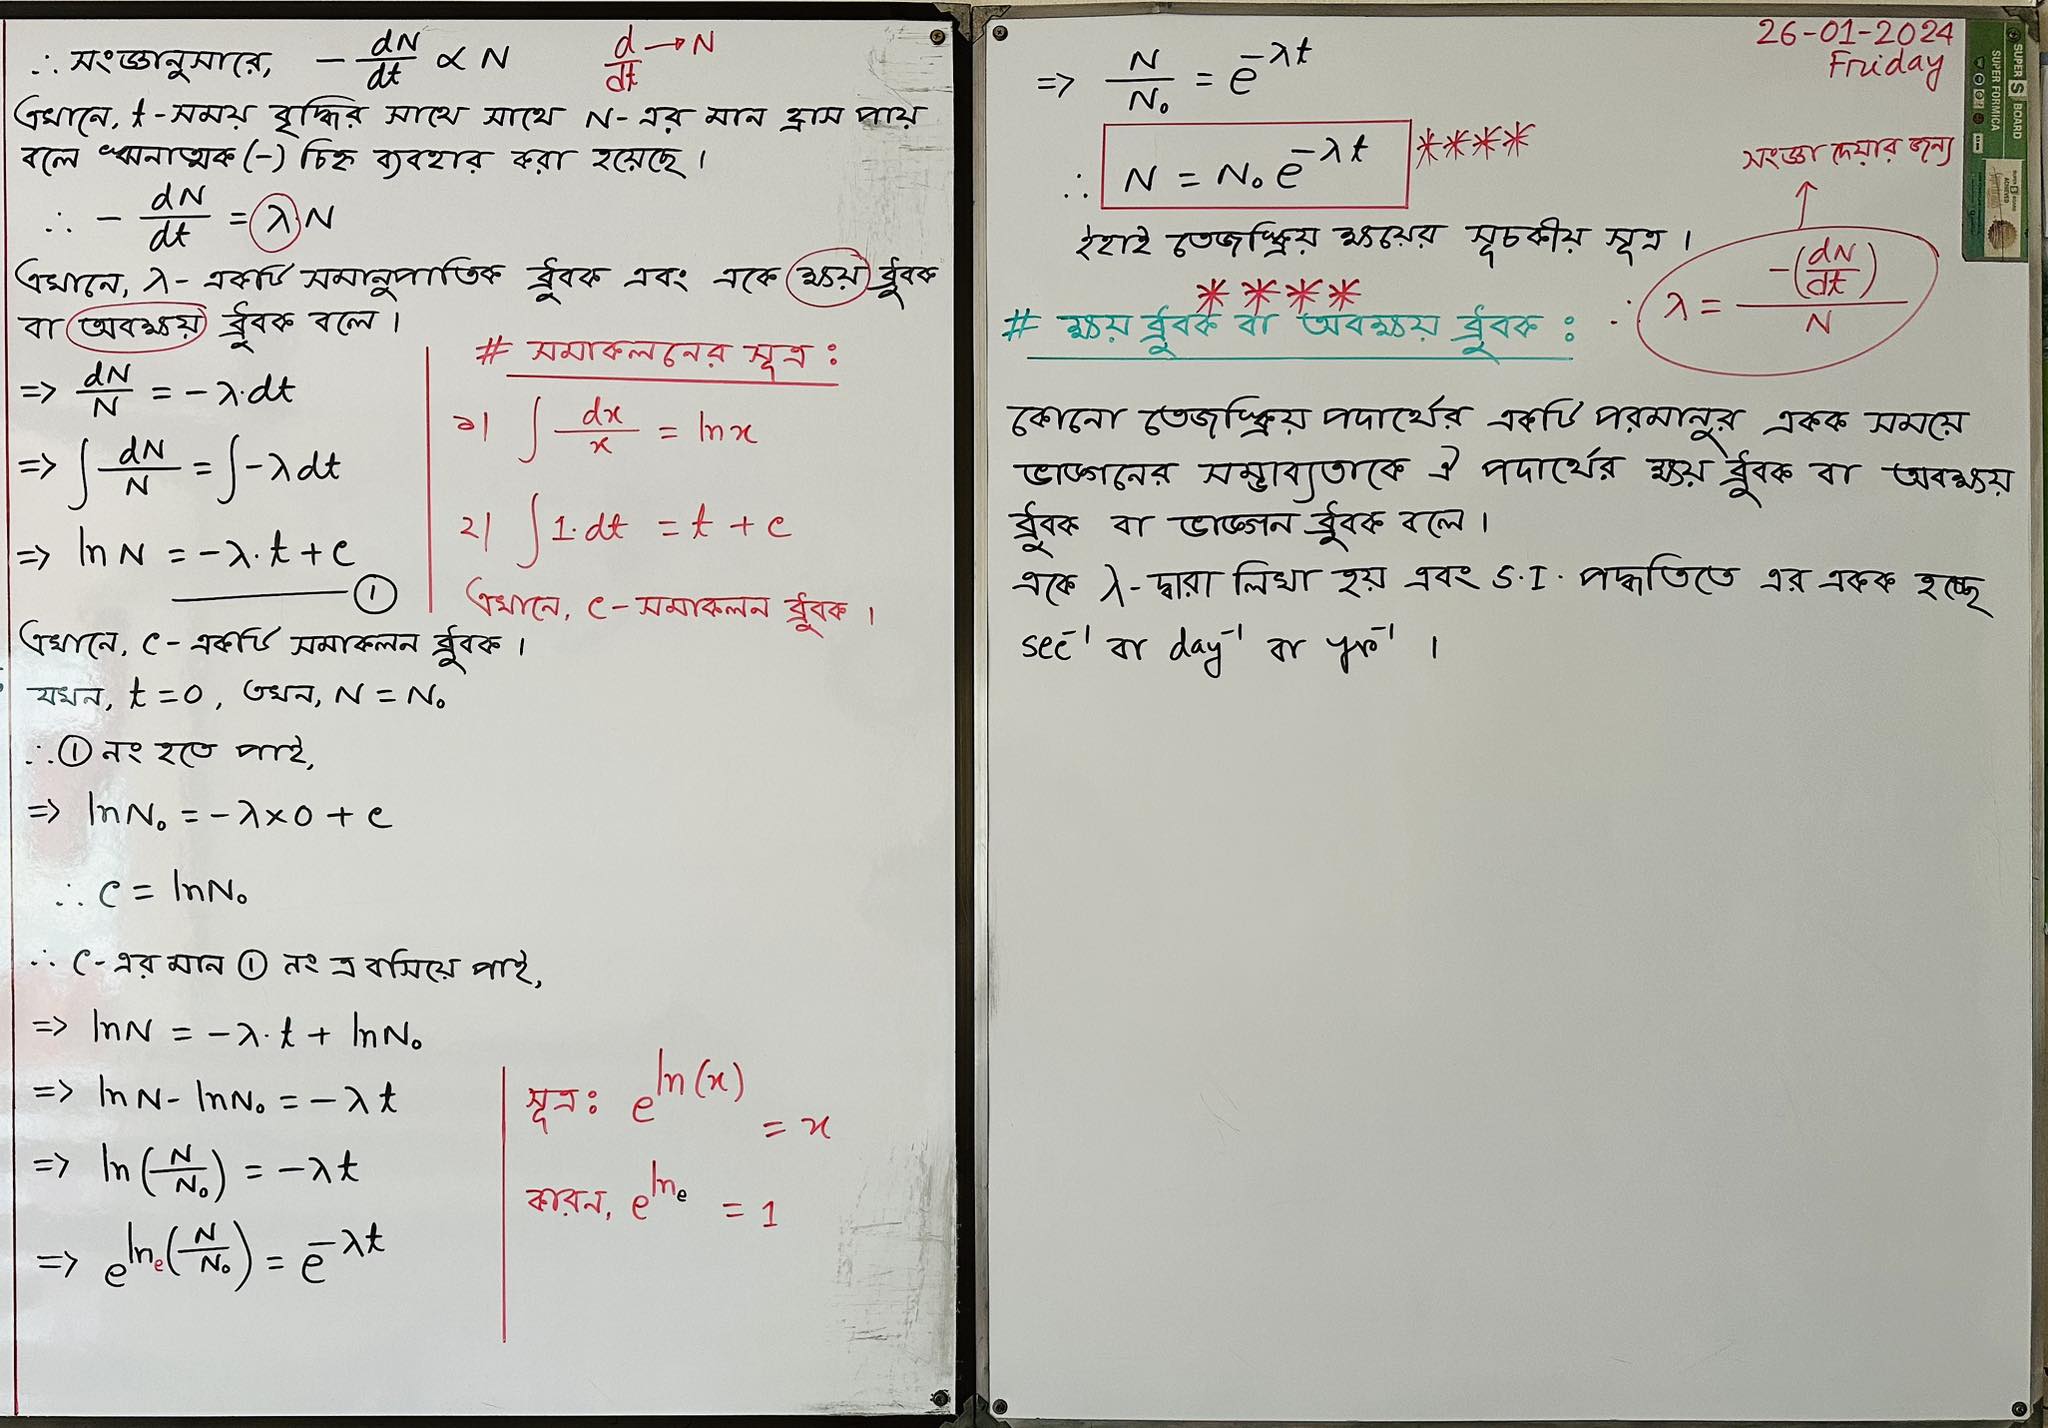 ∴ সংজ্ঞানুসারে, - dN/dt ∝ N
d/dt → N
এখানে, t-সময় বৃদ্ধির সাথে সাথে N-এর মান হ্রাস পায়
বলে ঋনাত্মক (-) চিহ্ন ব্যবহার করা হয়েছে।
∴ - dN/dt = λN
এখানে, λ- একটি সমানুপাতিক ধ্রুবক এবং একে ক্ষয় ধ্রুবক
বা অবক্ষয় ধ্রুবক বলে।
=> dN/N = -λ·dt
=> ∫ dN/N = ∫ -λdt
=> ln N = -λ·t + c
①
# সমাকলনের সূত্র :
১| ∫ dx/x = lnx
২| ∫ 1·dt = t + c
এখানে, c- সমাকলন ধ্রুবক।
এখানে, c- একটি সমাকলন ধ্রুবক।
যখন, t = 0, তখন, N = N₀
∴ ① নং হতে পাই,
=> lnN₀ = -λ×0 + c
∴ c = lnN₀
∴ c-এর মান ① নং এ বসিয়ে পাই,
=> lnN = -λ·t + lnN₀
=> lnN - lnN₀ = -λt
=> ln(N/N₀) = -λt
=> e^lnₑ(N/N₀) = e^-λt
সূত্র: e^ln(x) = x
কারন, e^lnₑ = 1
26-01-2024
Friday
=> N/N₀ = e^-λt
∴ N = N₀e^-λt ****
ইহাই তেজস্ক্রিয় ক্ষয়ের সূচকীয় সূত্র।
সংজ্ঞা দেয়ার জন্য
∴ λ = -(dN/dt)/N
****
# ক্ষয় ধ্রুবক বা অবক্ষয় ধ্রুবক :
কোনো তেজস্ক্রিয় পদার্থের একটি পরমানুর একক সময়ে
ভাঙ্গনের সম্ভাব্যতাকে ঐ পদার্থের ক্ষয় ধ্রুবক বা অবক্ষয়
ধ্রুবক বা ভাঙ্গন ধ্রুবক বলে।
একে λ-দ্বারা লিখা হয় এবং S.I. পদ্ধতিতে এর একক হচ্ছে
sec⁻¹ বা day⁻¹ বা yr⁻¹ ।
SUPER S BOARD
SUPER FORMICA